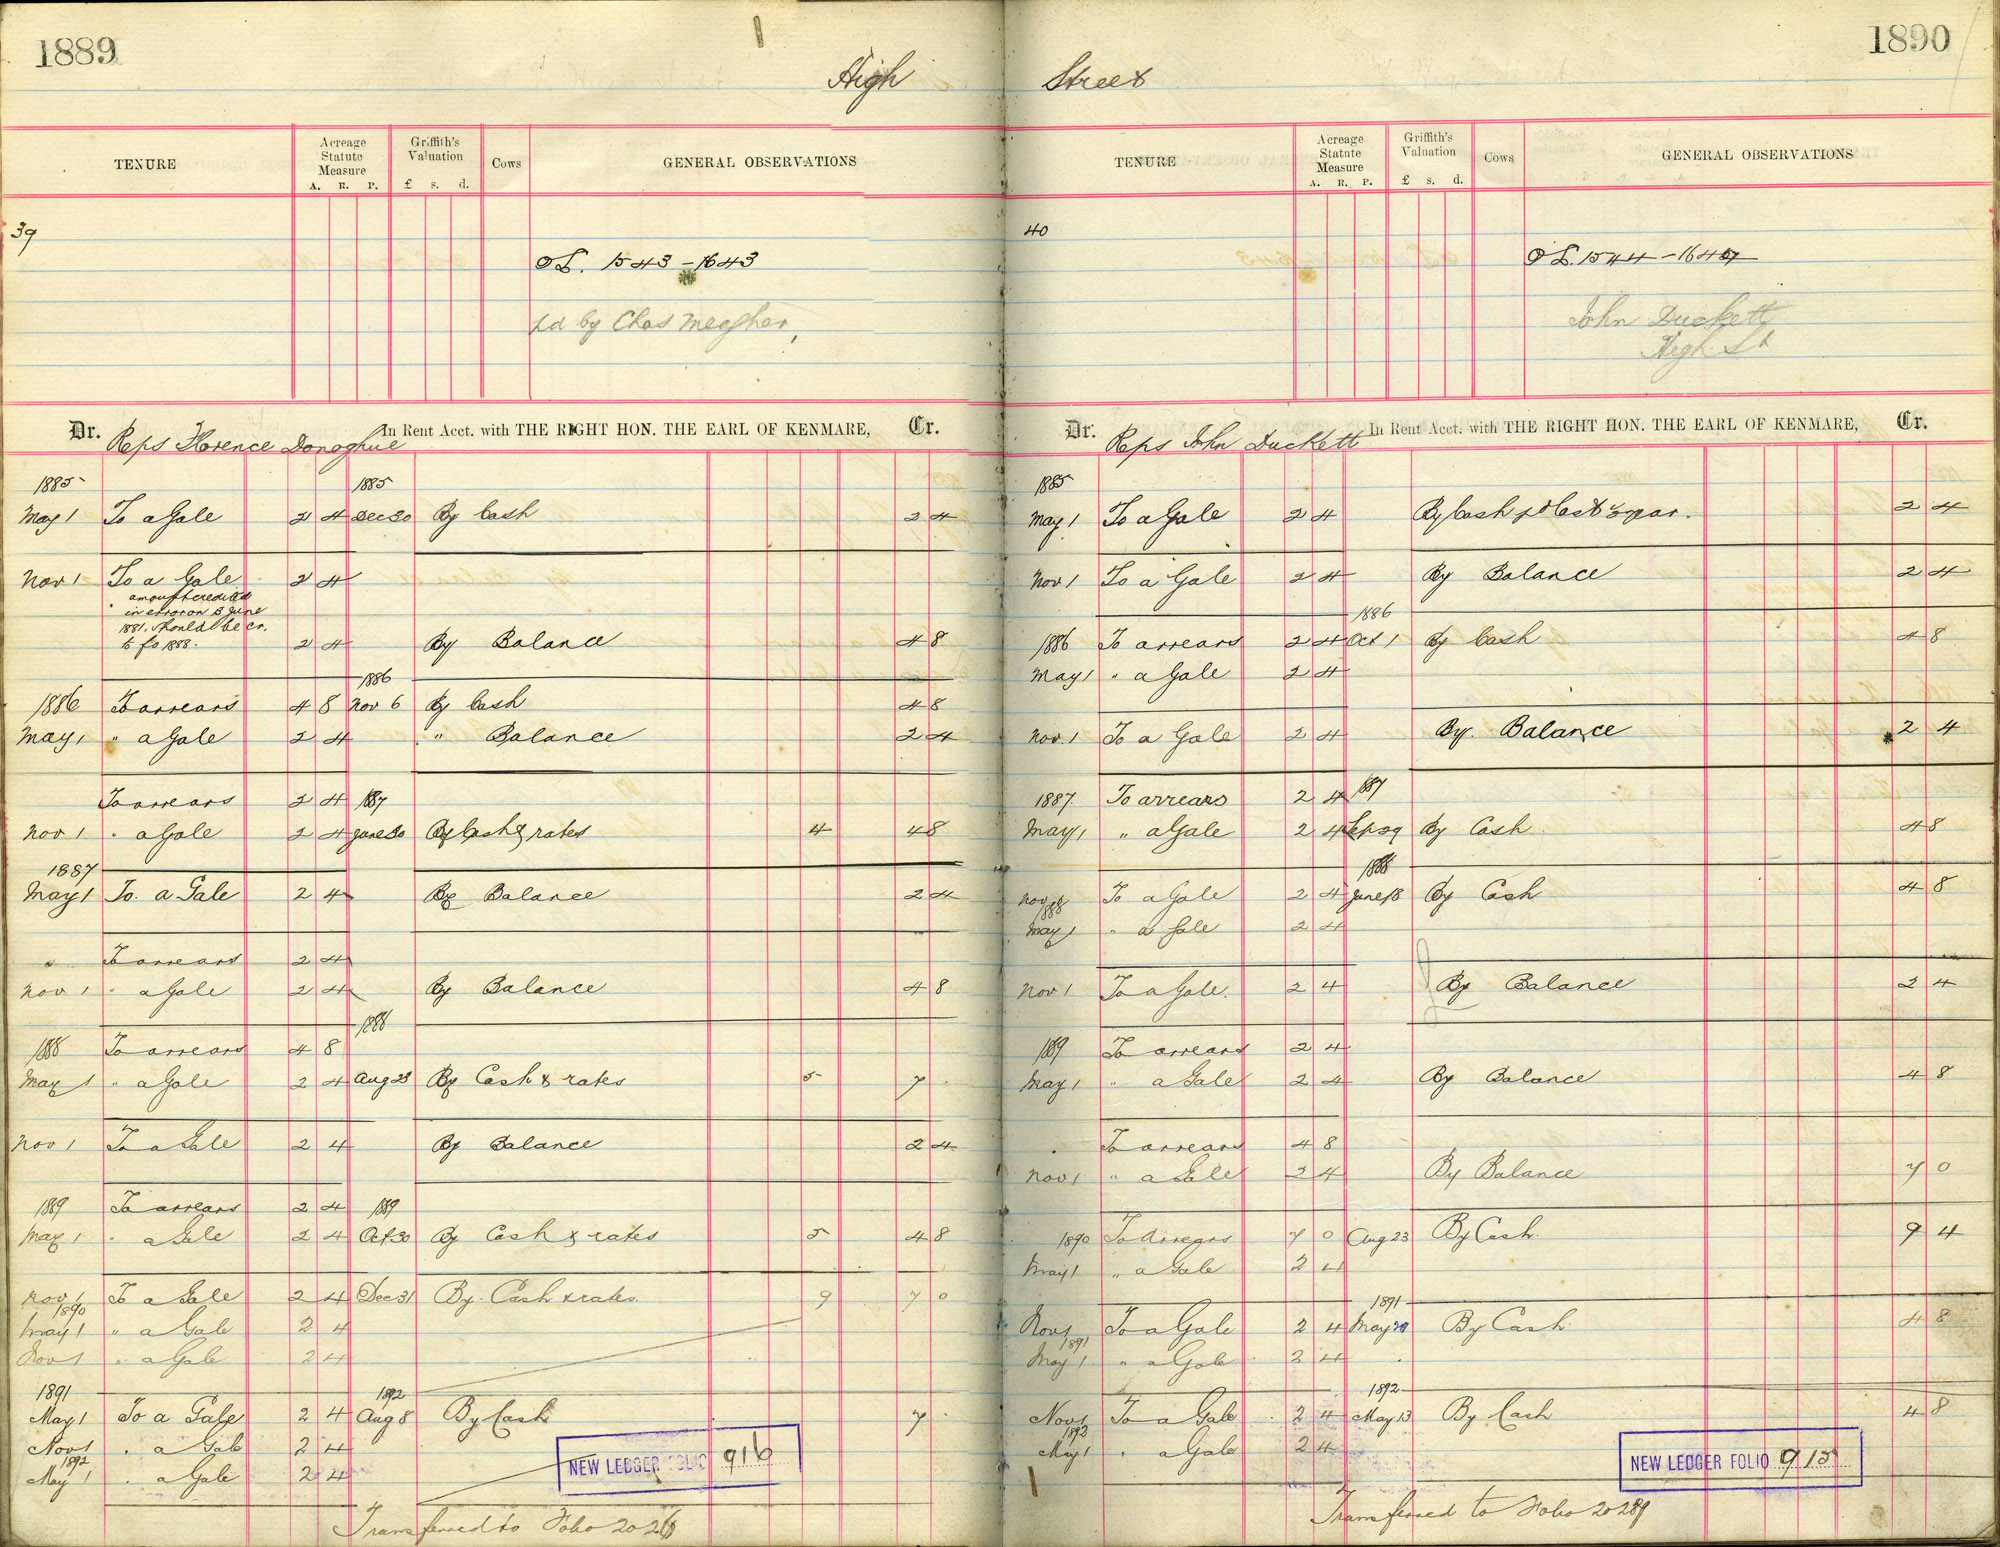 1889
High
TENURE
Acreage Statute Measure
A. R. P.
Griffith's Valuation
£ s. d.
Cows
GENERAL OBSERVATIONS
39
O L. 1543 - 1643
by Chas Meagher,
Dr. Reps Florence Donoghue In Rent Acct. with THE RIGHT HON. THE EARL OF KENMARE, Cr.
1885 1885
May 1 To a Gale 2 4 Dec 30 By Cash 2 4
Nov 1 To a Gale 2 4
amount credited
in error on 3 June
1881. should be cr.
to fo 1888. 2 4 By Balance 4 8
1886
1886 To arrears 4 8 Nov 6 By Cash 4 8
May 1 " a Gale 2 4 " Balance 2 4
To arrears 2 4 1887
Nov 1 " a Gale 2 4 June 30 By Cash & rates 4 4 8
1887
May 1 To a Gale 2 4 By Balance 2 4
" To arrears 2 4
Nov 1 " a Gale 2 4 By Balance 4 8
1888
1888 To arrears 4 8
May 1 " a Gale 2 4 Aug 23 By Cash & rates 5 7
Nov 1 To a Gale 2 4 By Balance 2 4
1889 To arrears 2 4 1889
May 1 " a Gale 2 4 Oct 30 By Cash & rates 5 4 8
Nov 1 To a Gale 2 4 Dec 31 By Cash & rates 9 7 0
1890
May 1 " a Gale 2 4
Nov 1 " a Gale 2 4
1891 1892
May 1 To a Gale 2 4 Aug 8 By Cash 7
Nov 1 " a Gale 2 4
1892
May 1 " a Gale 2 4
NEW LEDGER FOLIO 916
Transferred to Folio 2026
1890
Street
TENURE
Acreage Statute Measure
A. R. P.
Griffith's Valuation
£ s. d.
Cows
GENERAL OBSERVATIONS
40
O L. 1544 -
John Duckett
High St
Dr. Reps John Duckett In Rent Acct. with THE RIGHT HON. THE EARL OF KENMARE, Cr.
1885
May 1 To a Gale 2 4 By Cash 2 4
Nov 1 To a Gale 2 4 By Balance 2 4
1886
1886 To arrears 2 4 Oct 1 By Cash 4 8
May 1 " a Gale 2 4
Nov 1 To a Gale 2 4 By Balance 2 4
1887 To arrears 2 4 1887
May 1 " a Gale 2 4 Sep 29 By Cash 4 8
1888
Nov To a Gale 2 4 June 18 By Cash 4 8
1888
May 1 " a Gale 2 4
Nov 1 To a Gale. 2 4 By Balance 2 4
1889 To arrears 2 4
May 1 " a Gale 2 4 By Balance 4 8
To arrears 4 8
Nov 1 " a Gale 2 4 By Balance 7 0
1890 To Arrears 7 0 Aug 23 By Cash 9 4
May 1 " a Gale 2 4
1891
Nov 1 To a Gale 2 4 May By Cash 4 8
1891
May 1 " a Gale 2 4
1892
Nov 1 To a Gale 2 4 May 13 By Cash 4 8
1892
May 1 " a Gale 2 4
NEW LEDGER FOLIO 915
Transferred to Folio